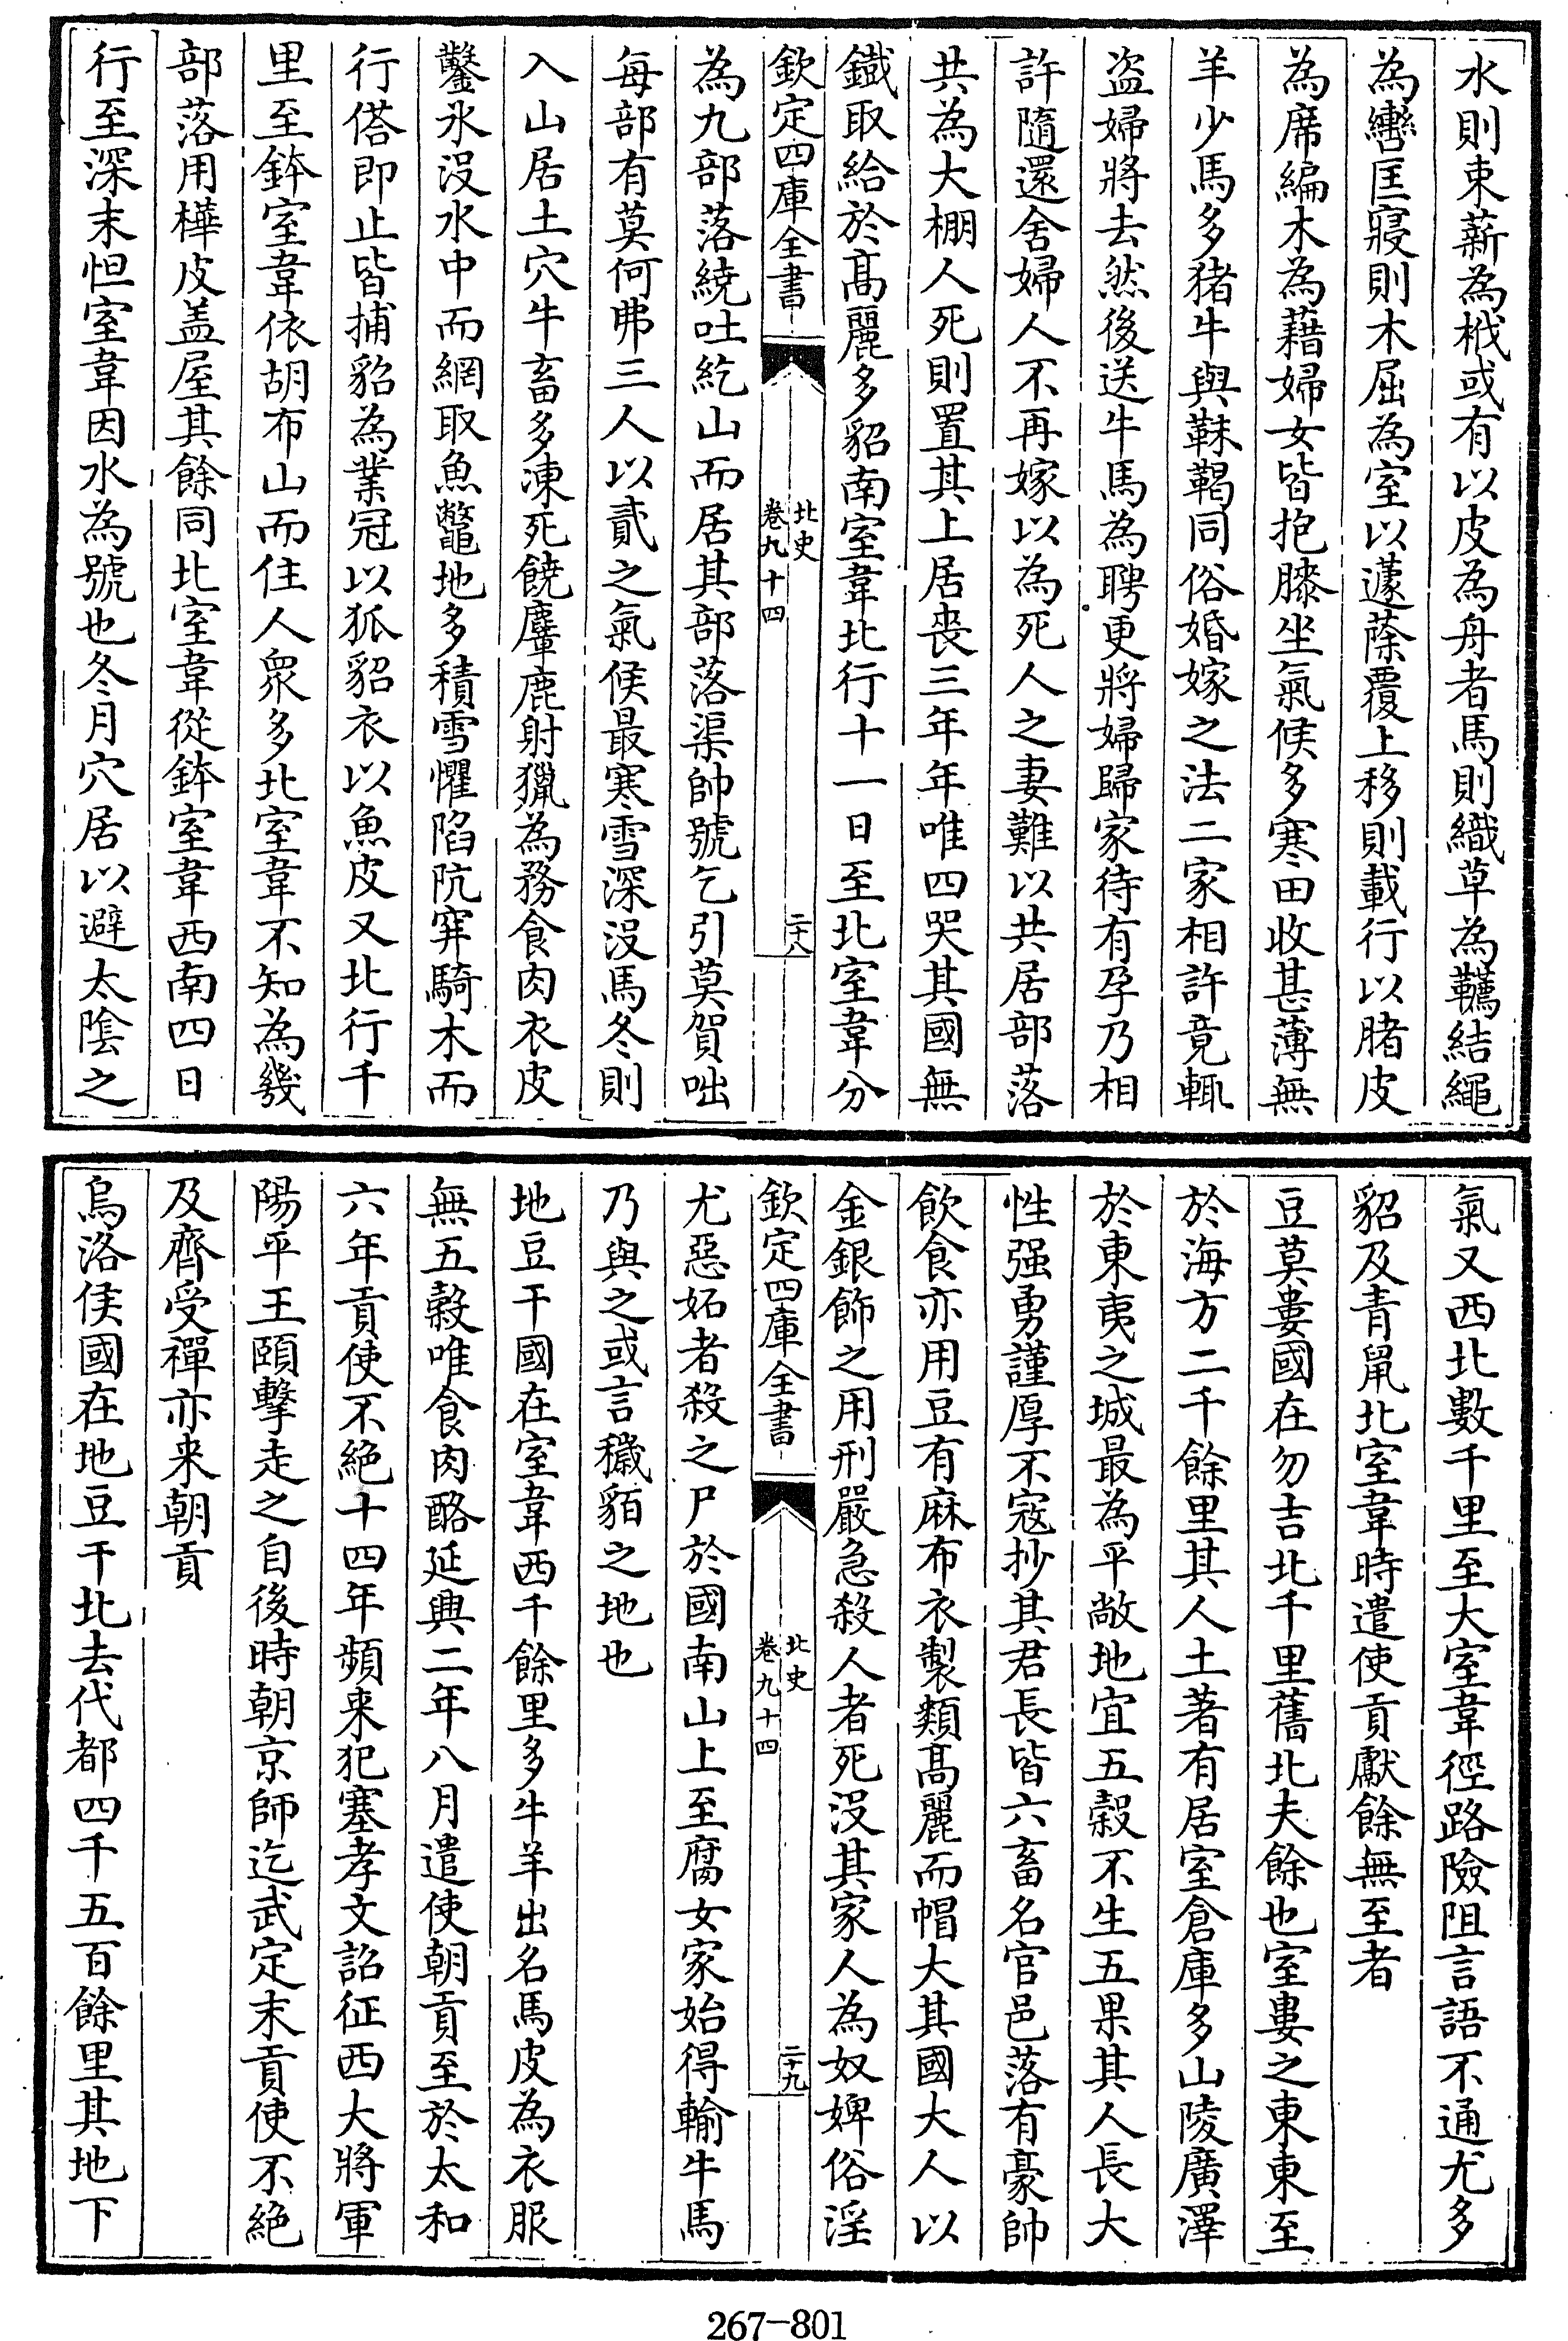 水則束薪為栰或有以皮為舟者馬則織草為韉結繩
為轡匡寢則木屈為室以蘧蒢覆上移則載行以賭皮
為席編木為藉婦女皆抱膝坐氣候多寒田收甚薄無
羊少馬多猪牛與靺鞨同俗婚嫁之法二家相許竟輒
盜婦將去然後送牛馬為聘更將婦歸家待有孕乃相
許隨還舍婦人不再嫁以為死人之妻難以共居部落
共為大棚人死則置其上居喪三年年唯四哭其國無
鐵取給於髙麗多貂南室韋北行十一日至北室韋分
欽定四庫全書
北史
卷九十四
二十八
為九部落繞吐紇山而居其部落渠帥號乞引莫賀咄
每部有莫何弗三人以貳之氣候最寒雪深沒馬冬則
入山居土穴牛畜多凍死饒麞鹿射獵為務食肉衣皮
鑿氷沒水中而網取魚鼈地多積雪懼陷阬穽騎木而
行㑽即止皆捕貂為業冠以狐貂衣以魚皮又北行千
里至鉢室韋依胡布山而住人衆多北室韋不知為幾
部落用樺皮盖屋其餘同北室韋從鉢室韋西南四日
行至深末怛室韋因水為號也冬月穴居以避太陰之
氣又西北數千里至大室韋徑路險阻言語不通尤多
貂及青鼠北室韋時遣使貢獻餘無至者
豆莫婁國在勿吉北千里舊北夫餘也室婁之東東至
於海方二千餘里其人土著有居室倉庫多山陵廣澤
於東夷之城最為平敞地宜五穀不生五果其人長大
性强勇謹厚不寇抄其君長皆六畜名官邑落有豪帥
飲食亦用豆有麻布衣製類髙麗而帽大其國大人以
金銀飾之用刑嚴急殺人者死沒其家人為奴婢俗淫
欽定四庫全書
北史
卷九十四
二十九
尤惡妬者殺之尸於國南山上至腐女家始得輸牛馬
乃與之或言穢貊之地也
地豆干國在室韋西千餘里多牛羊出名馬皮為衣服
無五穀唯食肉酪延興二年八月遣使朝貢至於太和
六年貢使不絶十四年頻来犯塞孝文詔征西大將軍
陽平王頤擊走之自後時朝京師迄武定末貢使不絶
及齊受禪亦来朝貢
烏洛侯國在地豆干北去代都四千五百餘里其地下
267-801